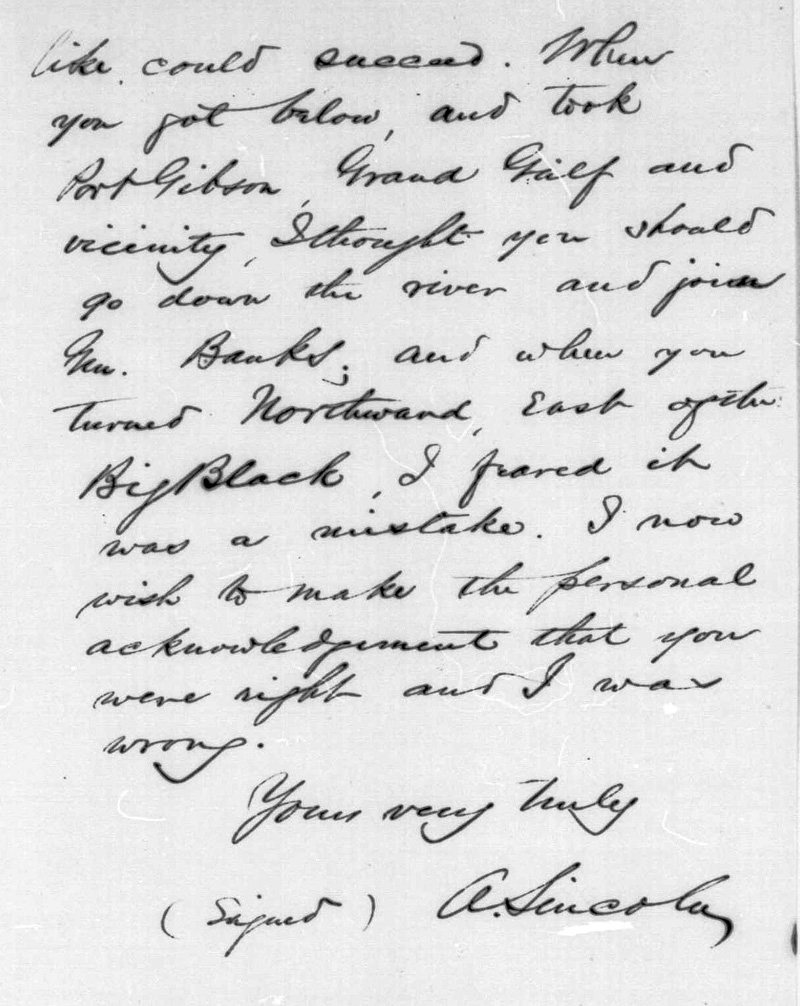 like could succeed. When
you got below, and took
Port Gibson, Grand Gulf and
vicinity, I thought you should
go down the river and join
Gen. Banks; and when you
turned Northward, East of the
Big Black, I feared it
was a mistake. I now
wish to make the personal
acknowledgement that you
were right and I was
wrong.
Yours very truly
(Signed) A. Lincoln